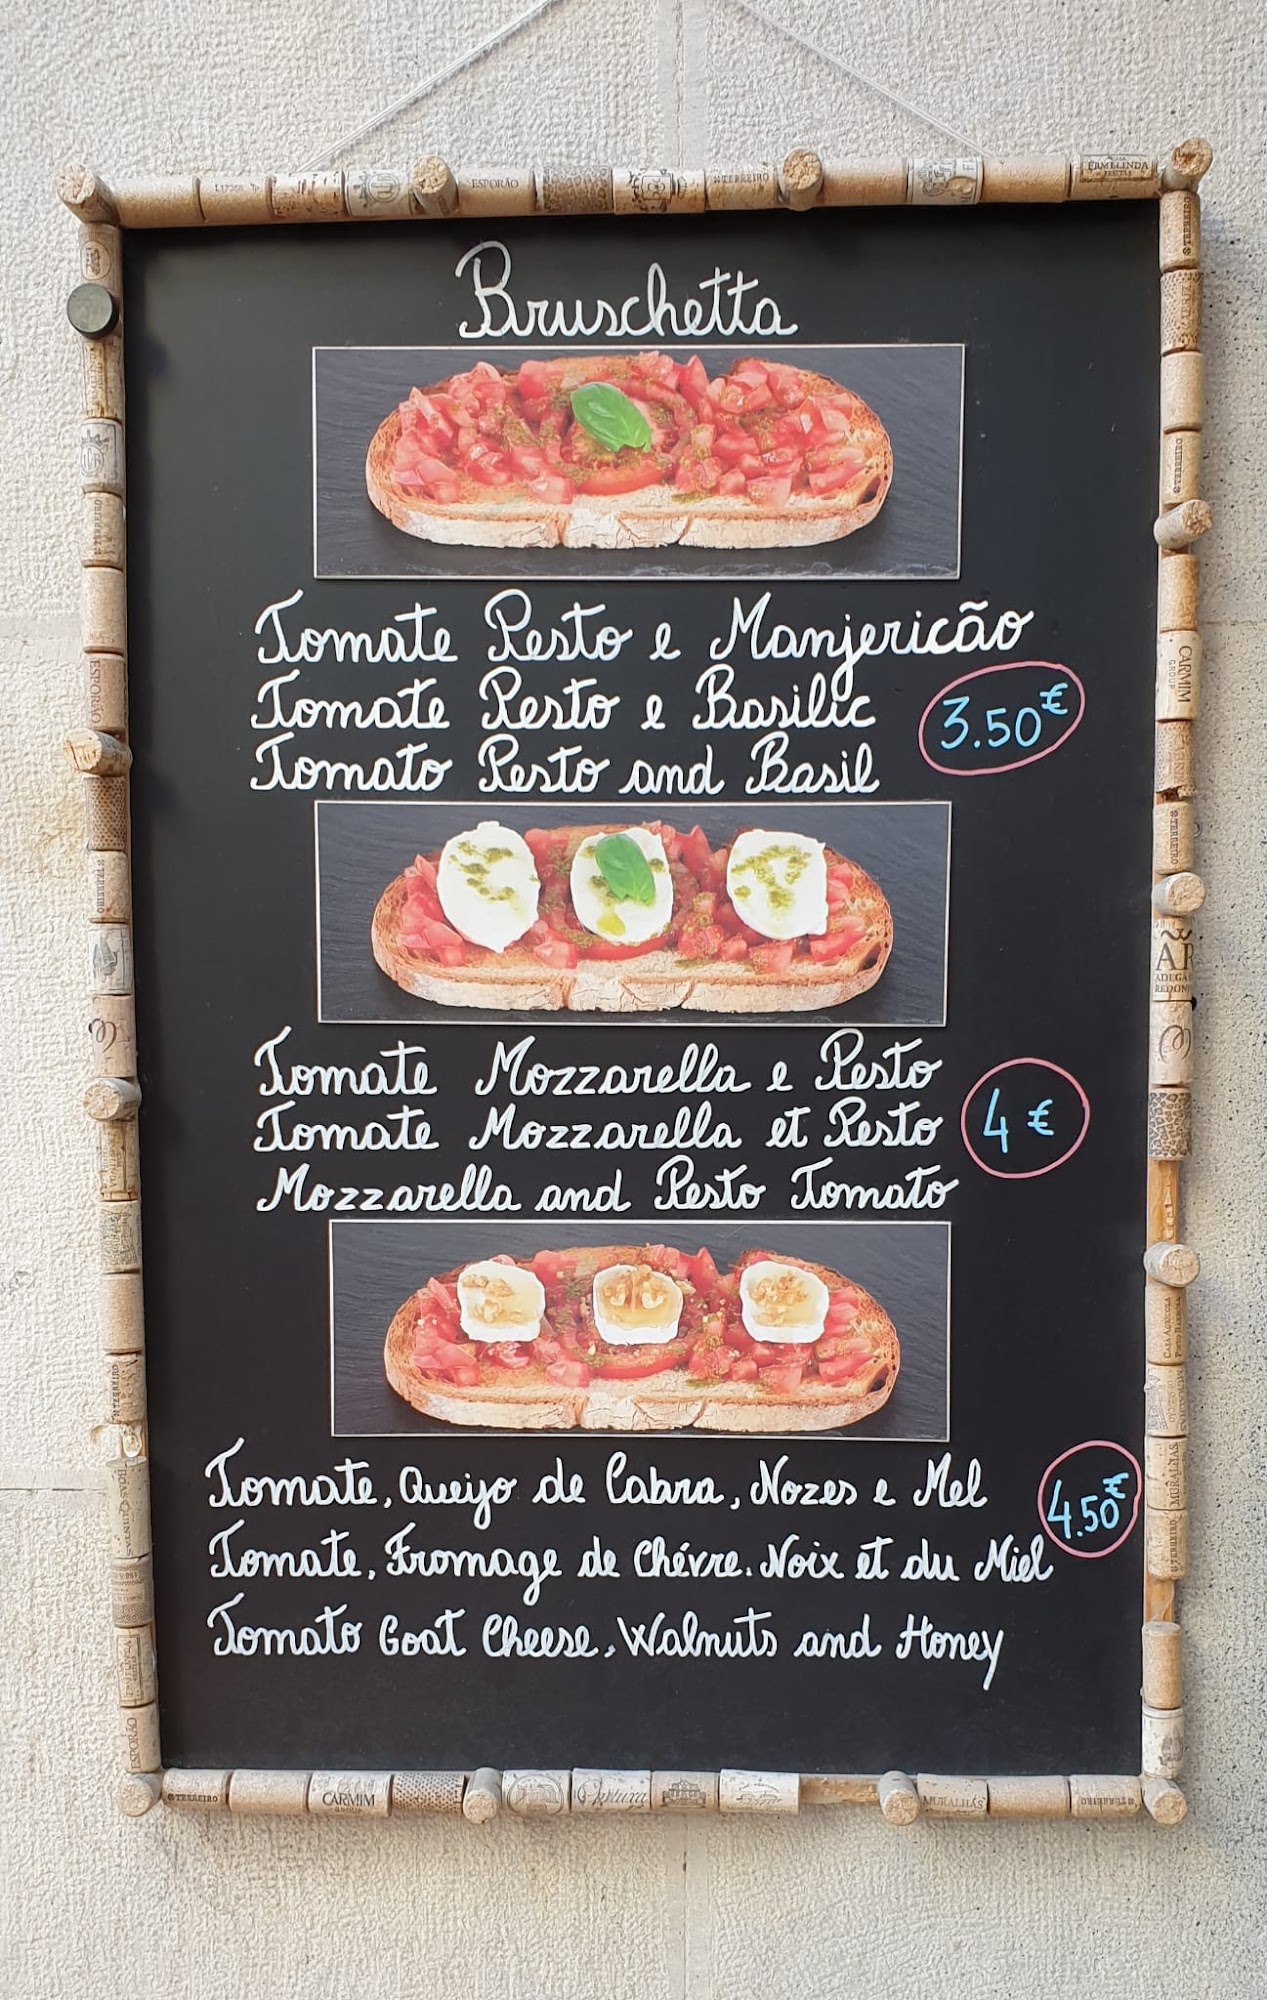 Bruschetta
Tomate Pesto e Manjericão
Tomate Pesto e Basilic
Tomato Pesto and Basil
3.50€
Tomate Mozzarella e Pesto
Tomate Mozzarella et Pesto
Mozzarella and Pesto Tomato
4€
Tomate, Queijo de Cabra, Nozes e Mel
Tomate, Fromage de Chévre. Noix et du Miel
Tomato Goat Cheese, Walnuts and Honey
4.50€
ESPORÃO
TERREIRO
ERMELINDA
CARMIM
GROUP
ADEGA
TERREIRO
CARMIM
MURALHAS
TERREIRO
ESPORÃO
ESPORÃO